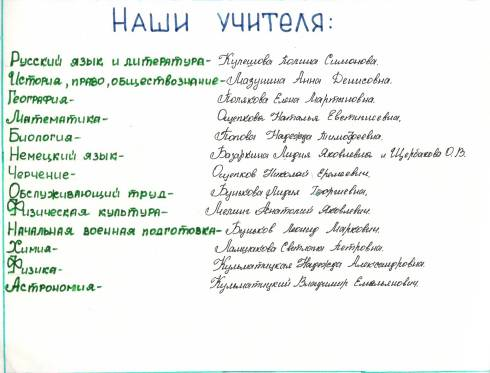 Наши учителя:
Русский язык и литература- Кулешова Полина Симонова.
История, право, обществознание- Мазушина Анна Денисовна.
География- Полякова Елена Мартыновна.
Математика- Ощепкова Наталья Евгениевна.
Биология- Попова Надежда Тимофеевна.
Немецкий язык- Базаркина Лидия Яковлевна и Щербакова О.В.
Черчение- Ощепков Николай
Обслуживающий труд- Бушкова Лидия Георгиевна.
Физическая культура- Анатолий Яковлевич.
Начальная военная подготовка- Бушков Леонид Маркович.
Химия- Светлана Петровна.
Физика- Кульматицкая Надежда Александровна.
Астрономия- Кульматицкий Владимир Емельянович.